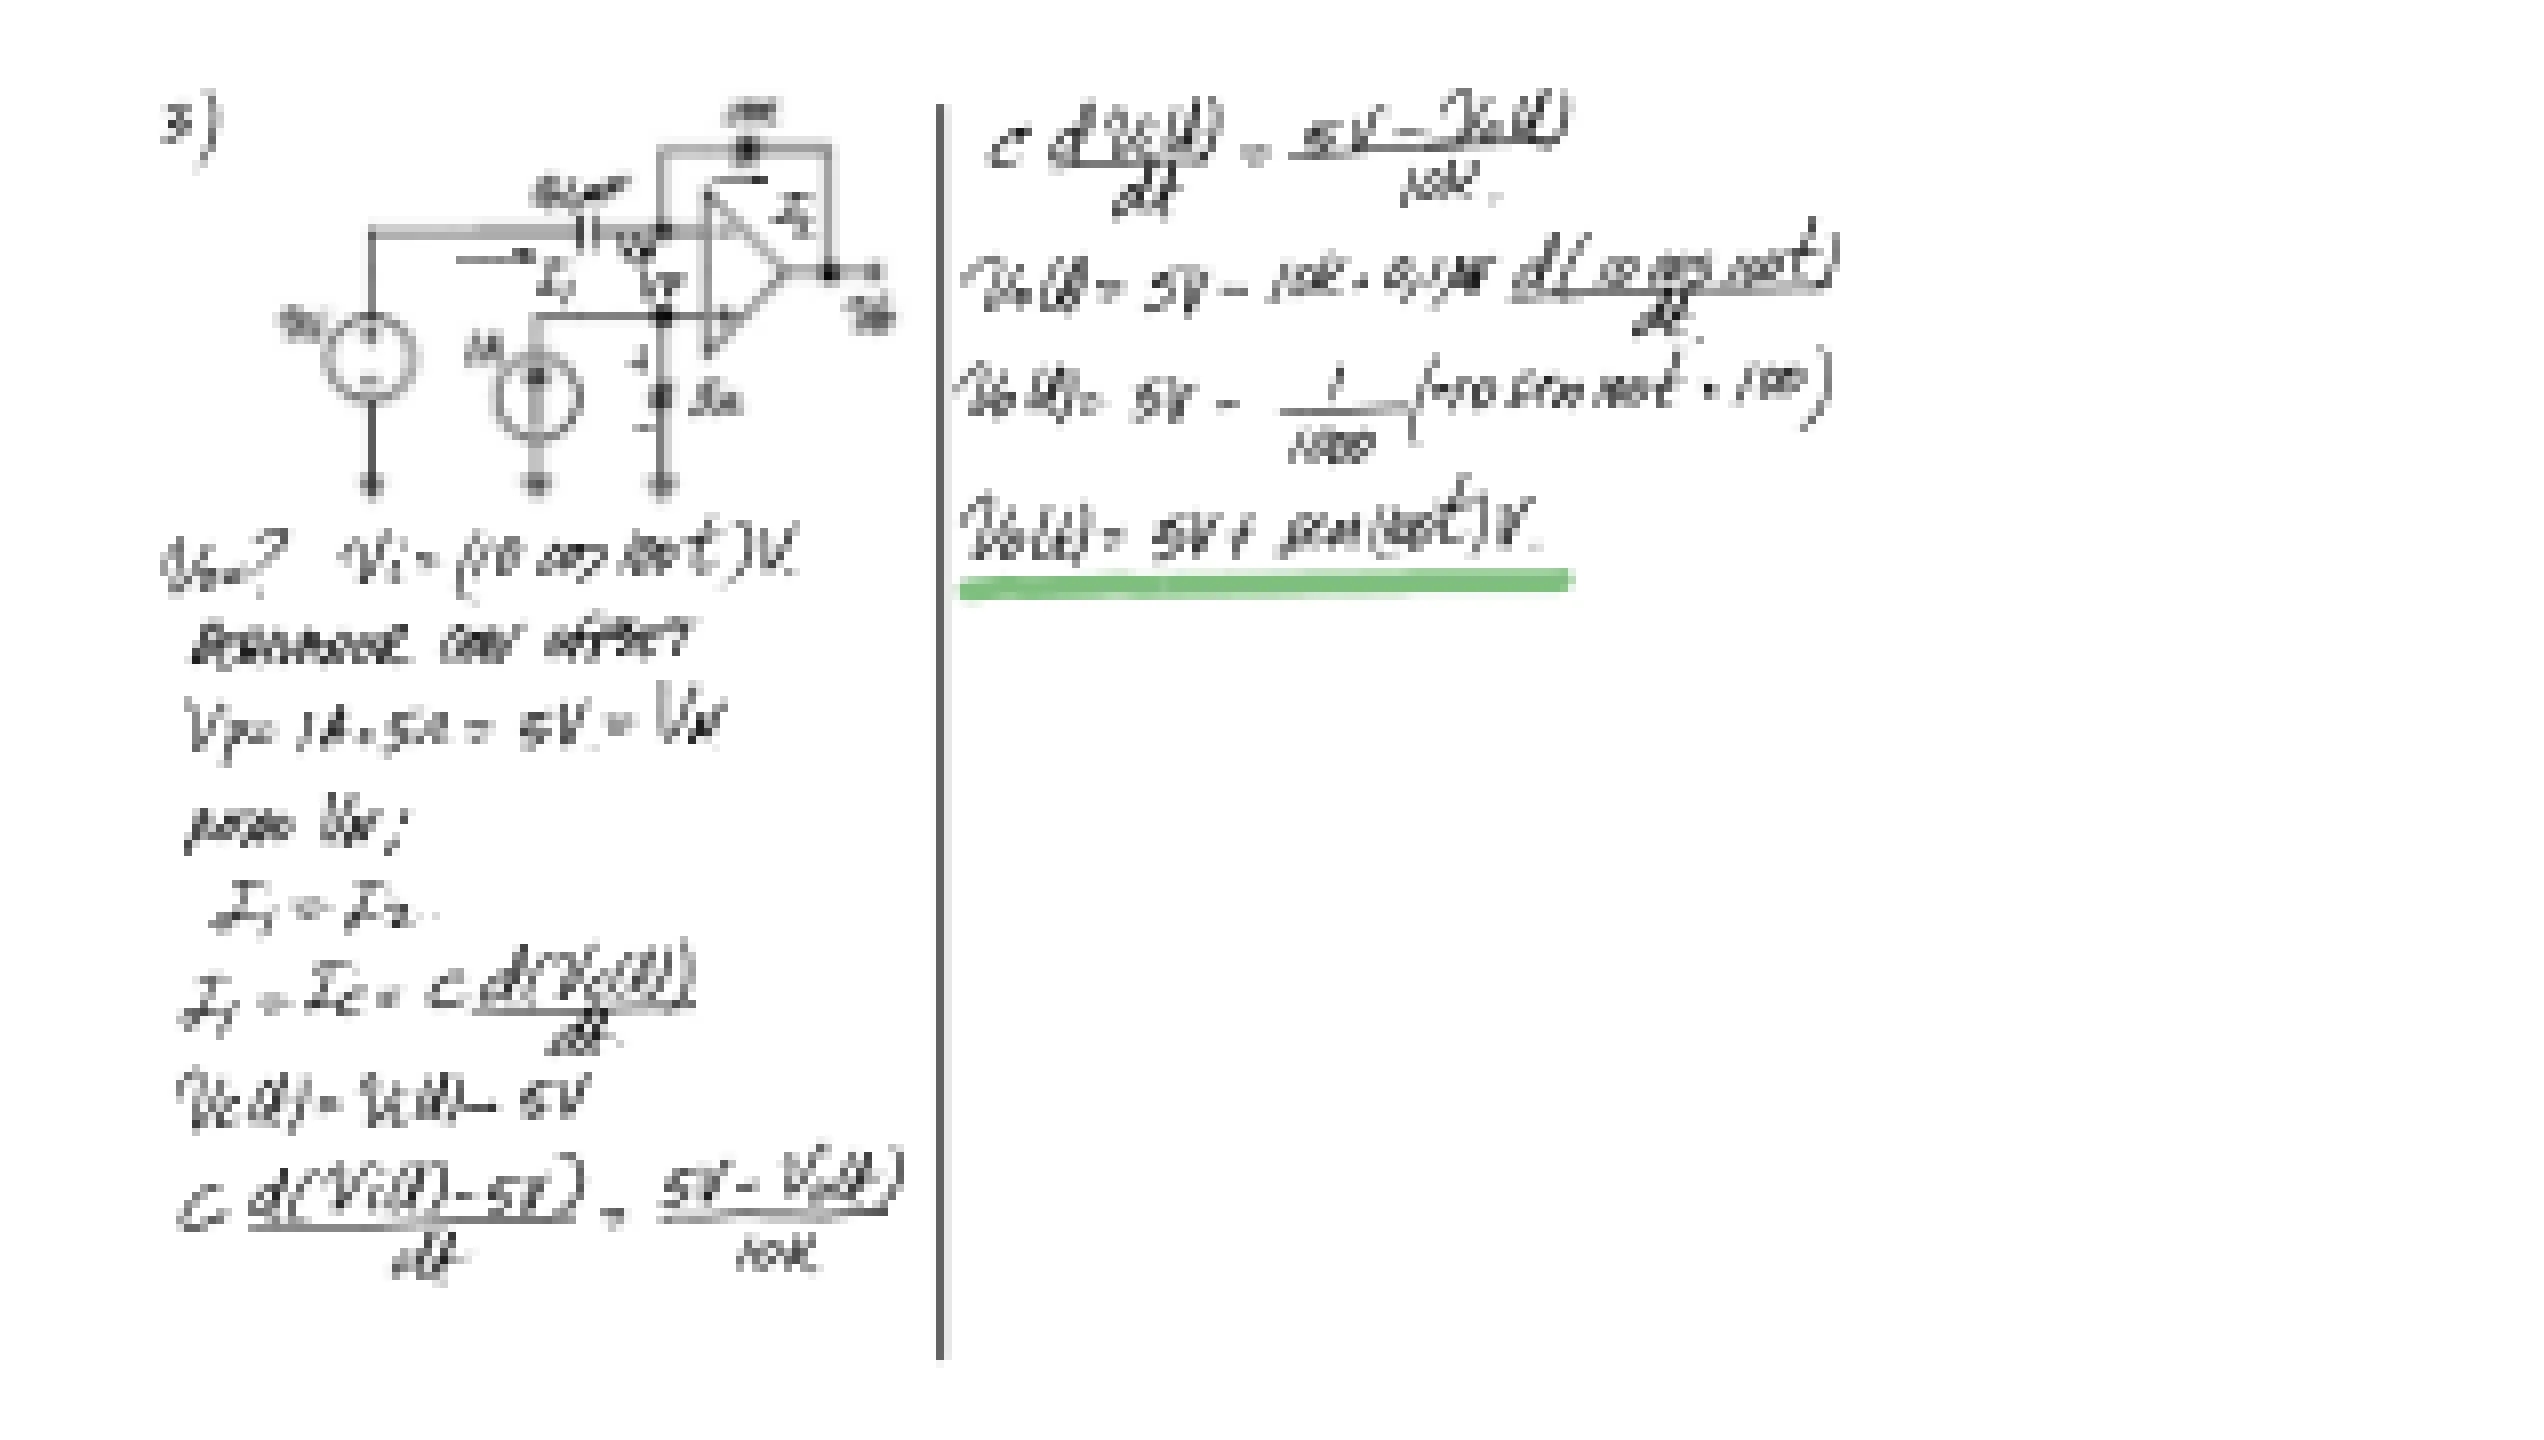 3)
10K
0,1µF
I2
I1
Vi
1A
5Ω
Vo
Vo=? Vi = (10 cos 100t)V.
DERIVADOR CON OFFSET
Vp = 1A . 5Ω = 5V = VN
NODO VN;
I1 = I2.
I1 = Ic = C d(Vc(t))/dt
Vc(t) = Vi(t) - 5V
C d(Vi(t) - 5V)/dt = 5V - Vo(t)/10K
C dVi(t)/dt = 5V - Vo(t)/10K.
Vo(t) = 5V - 10K . 0,1µ d(10 cos 100t)/dt
Vo(t) = 5V - 1/1000 (-10 sen 100t . 100)
Vo(t) = 5V + sen(100t)V.